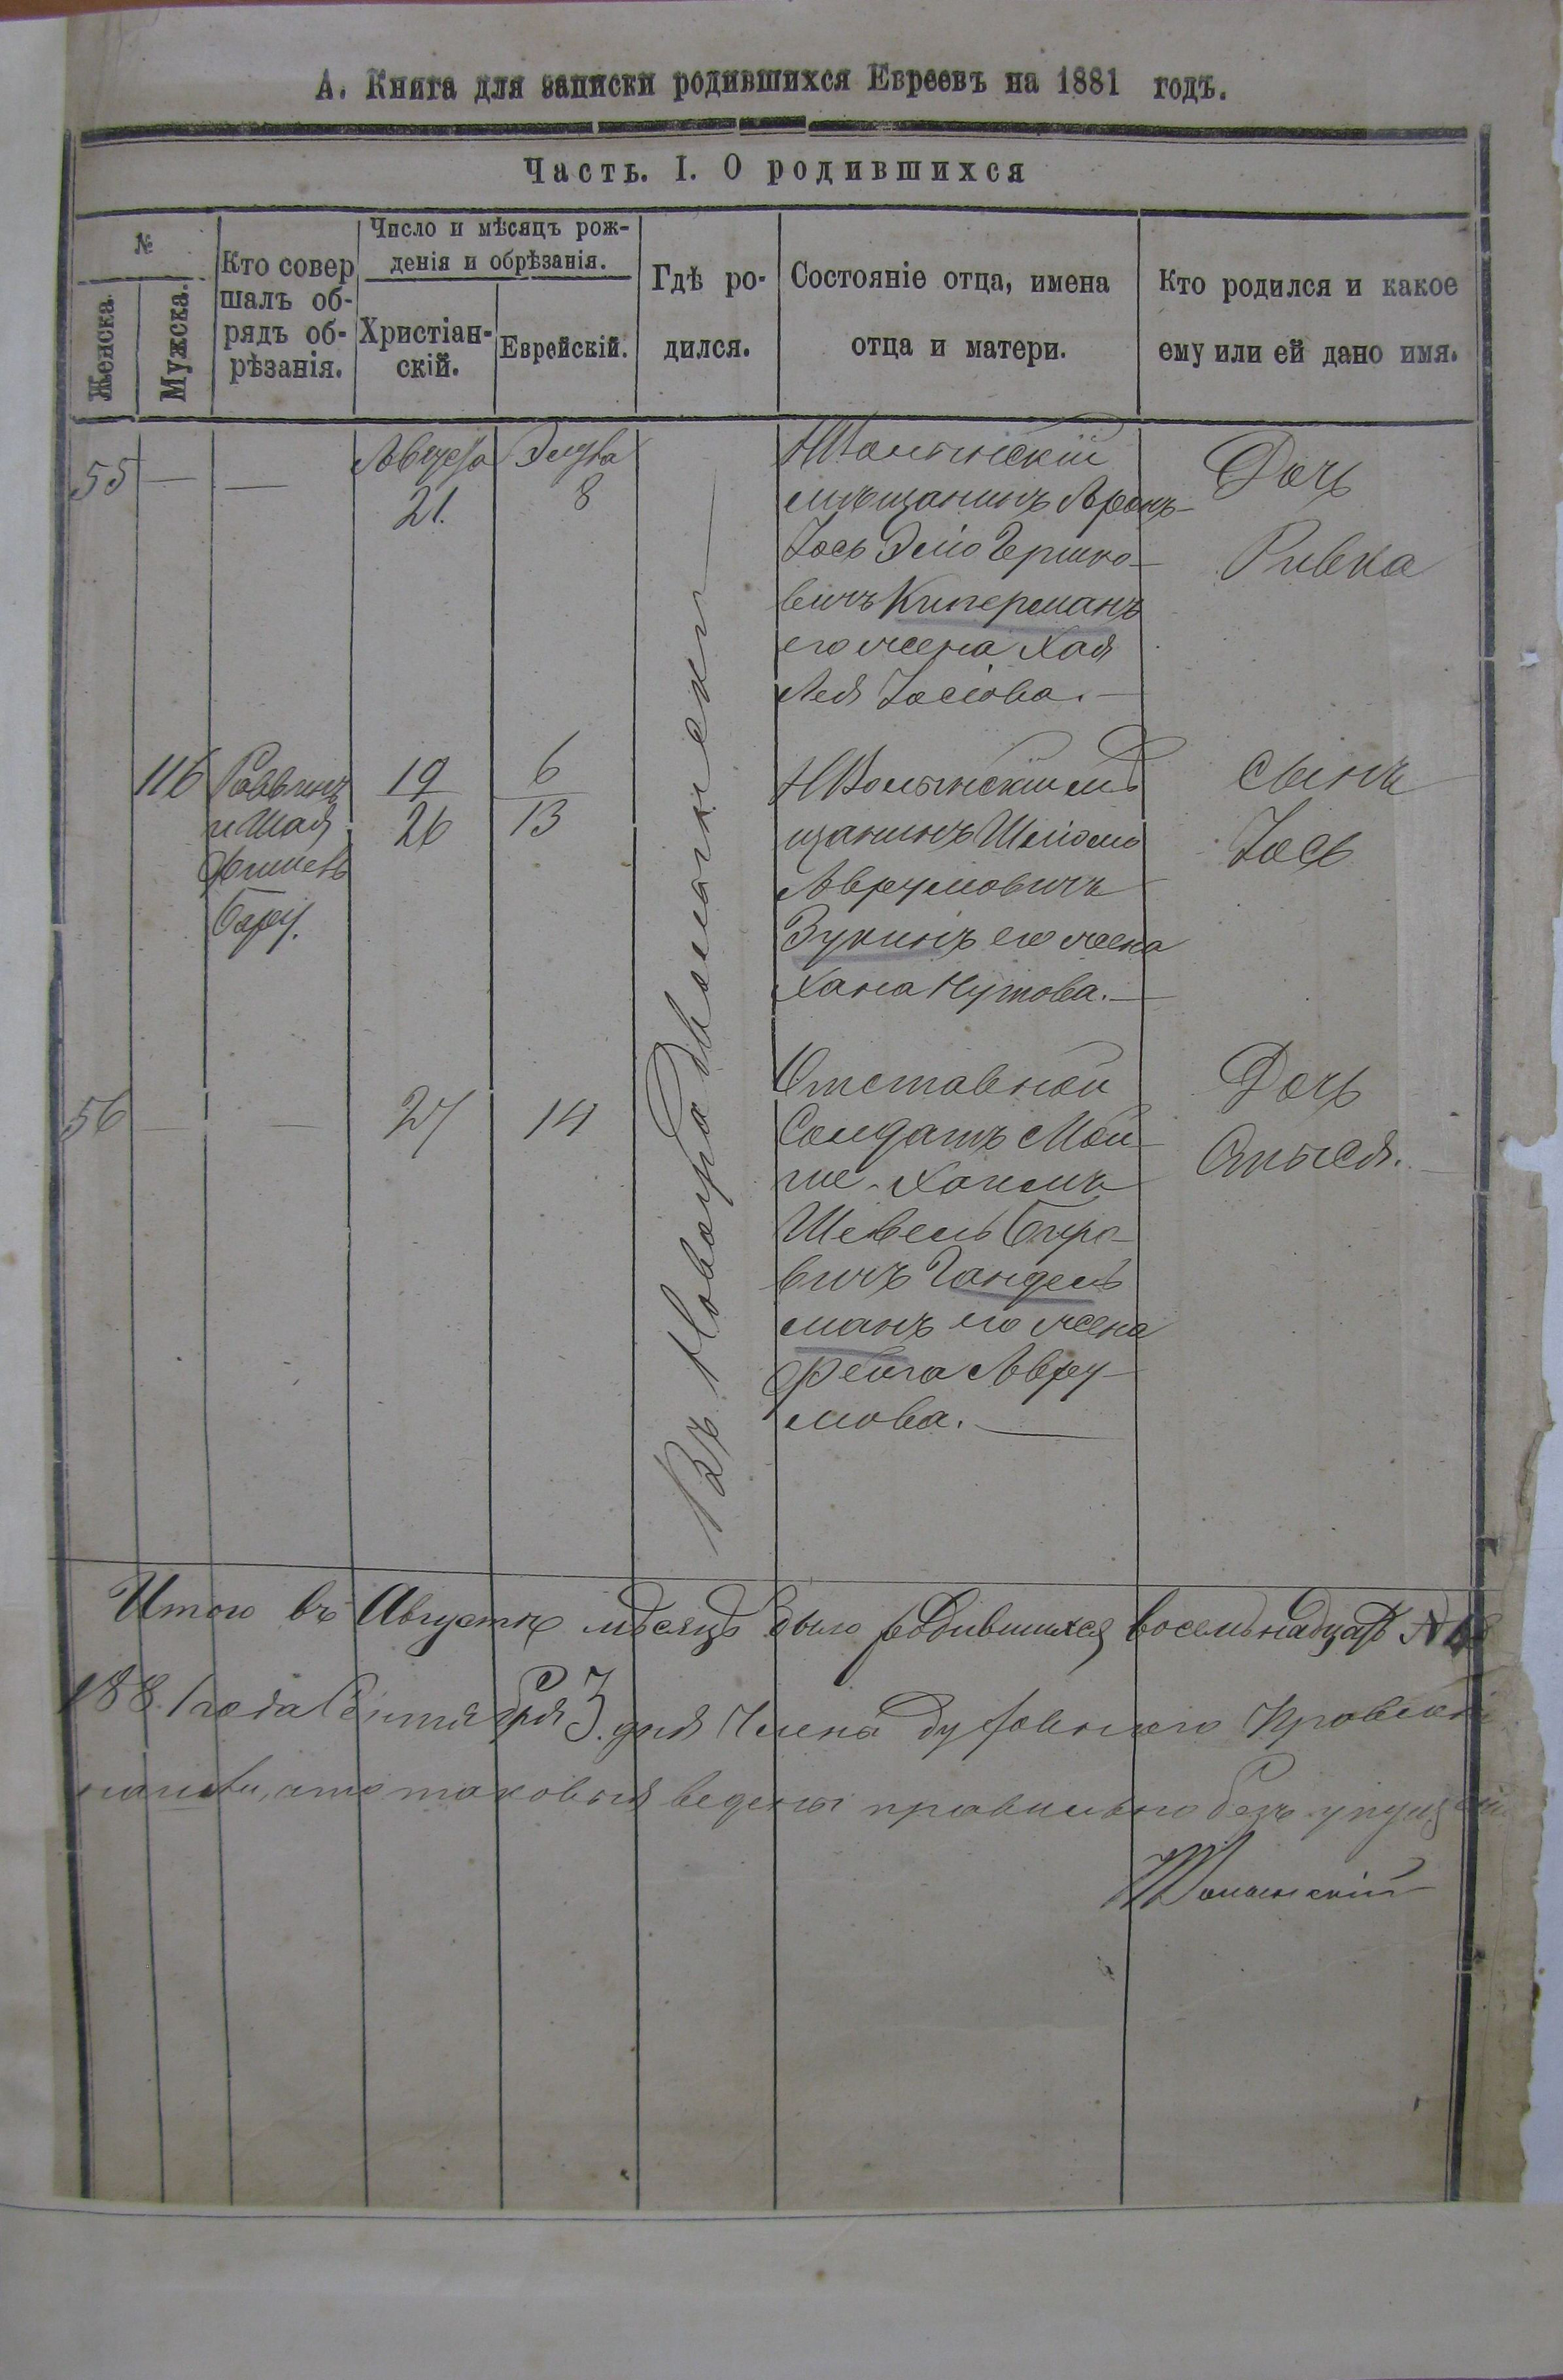 А. Книга для записки родившихся Евреевъ на 1881 годъ.
Часть. I. О родившихся
№
Женска.
Мужска.
Кто совер
шалъ об-
рядъ об-
рѣзанія.
Число и мѣсяцъ рож-
денія и обрѣзанія.
Христіан-
скій.
Еврейскій.
Гдѣ ро-
дился.
Состояніе отца, имена
отца и матери.
Кто родился и какое
ему или ей дано имя.
55
—
—
Августа
21.
Элула
8
НВолынскій
мѣщанинъ Аронъ-
Іось Эліо Гершко-
вичъ Киперманъ
его жена Хая
Лея Іосіова.—
Дочь
Ривка
Въ Новоградволынске
116
Раввинъ
и Шая
Фишель
19
26
6
13
НВолынскій мѣ
щанинъ Шліома
Аврумовичъ
Зукинъ его жена
Хана Нутова.—
Сынъ
Іось
56
—
—
27
14
Отставной
Солдатъ Мой-
ше-Хаимъ
Шевель Беро-
вичъ Гандель
манъ его жена
Фейга Авру-
мова.—
Дочь
Итого въ Августѣ мѣсяцѣ было родившихся восемьнадцать №18
1881 года Сентября 3. дня Члены Духовнаго Правленія
нашли, что таковыя ведены правильно безъ упущеній